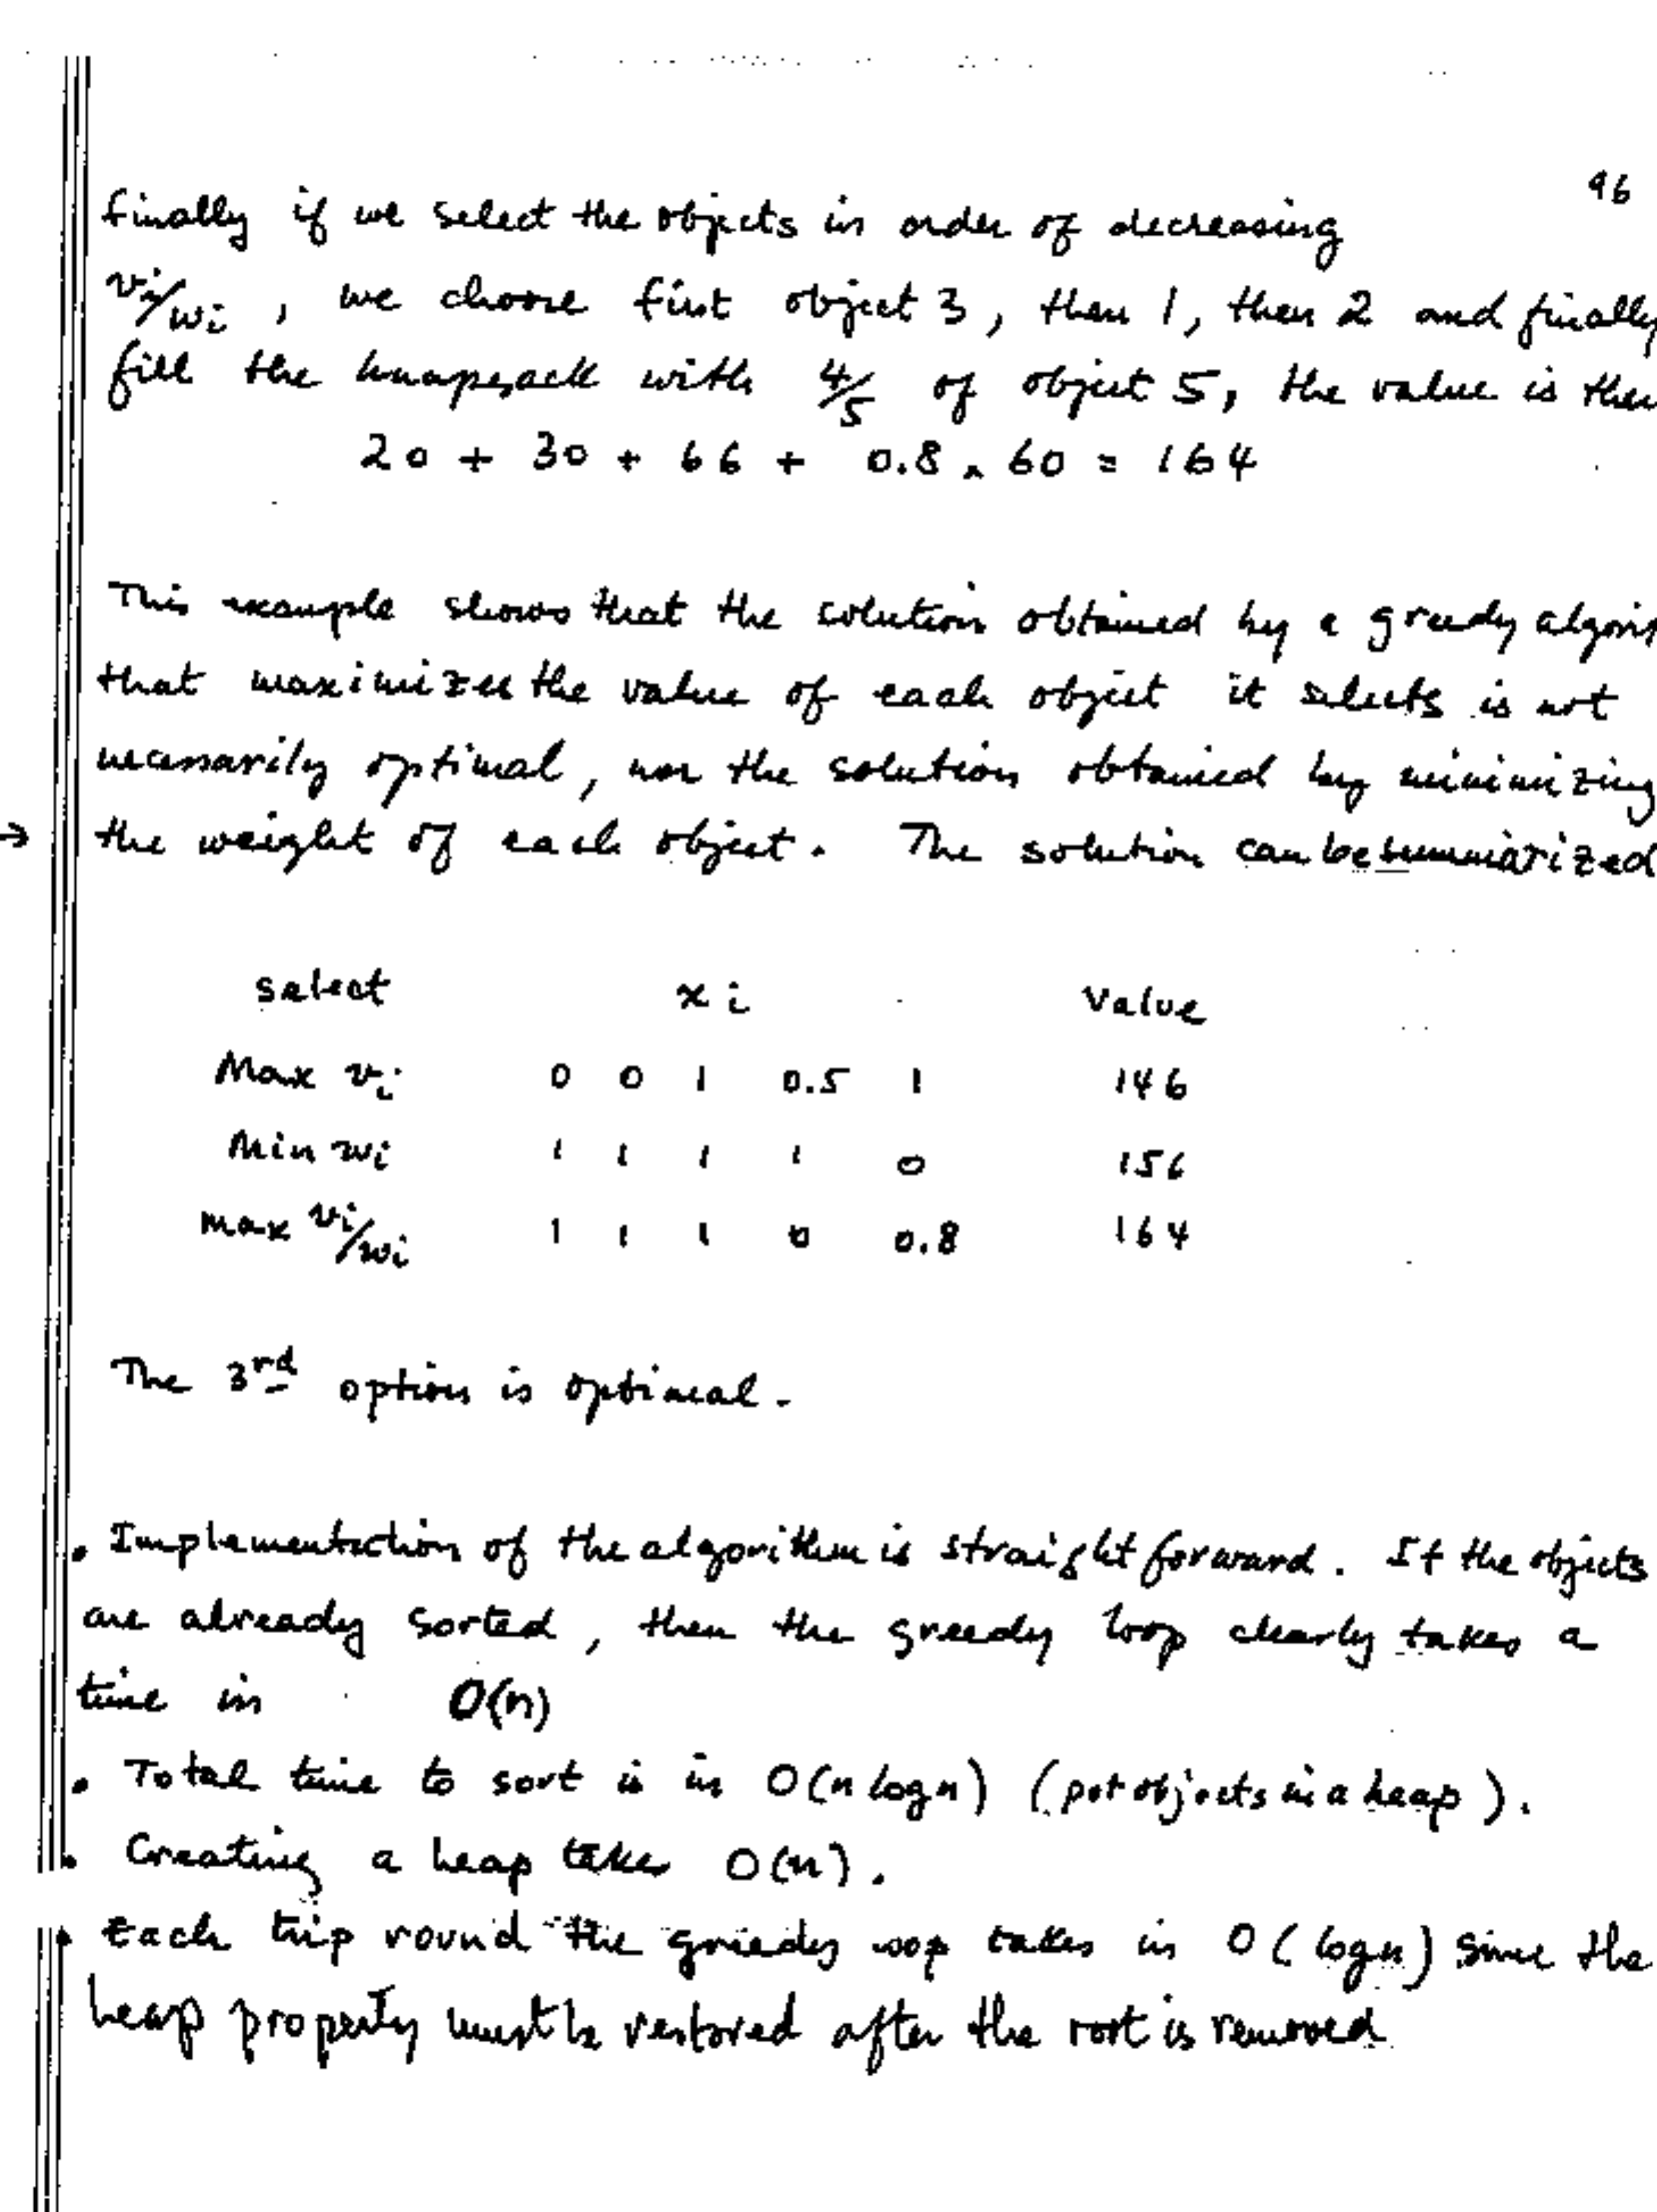 96
finally if we select the objects in order of decreasing
vi/wi , we choose first object 3, then 1, then 2 and finally
fill the knapsack with 4/5 of object 5, the value is then
20 + 30 + 66 + 0.8 × 60 = 164
This example shows that the solution obtained by a greedy algori
that maximizes the value of each object it selects is not
necessarily optimal, nor the solution obtained by minimizing
→ the weight of each object. The solution can be summarized
select xi Value
Max vi 0 0 1 0.5 1 146
Min wi 1 1 1 1 0 156
max vi/wi 1 1 1 0 0.8 164
The 3rd option is optimal.
• Implementation of the algorithm is straight forward. If the objects
are already sorted, then the greedy loop clearly takes a
time in O(n)
• Total time to sort is in O(n log n) (put objects in a heap).
• Creating a heap takes O(n).
• Each trip round the greedy loop takes in O(log n) since the
heap property must be restored after the root is removed